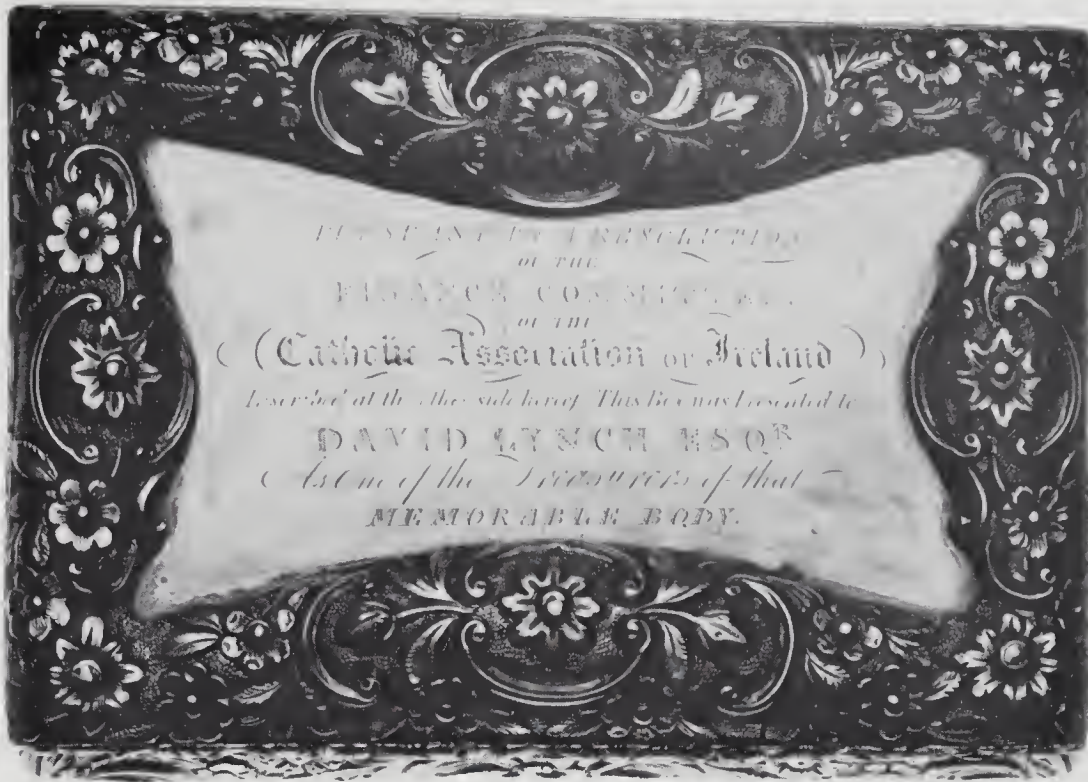 OF THE
FINANCE COMMITTEE
OF THE
(Catholic Association of Ireland)
at the other side hereof This Box was Presented to
DAVID LYNCH ESQR
As One of the Treasurers of that
MEMORABLE BODY.